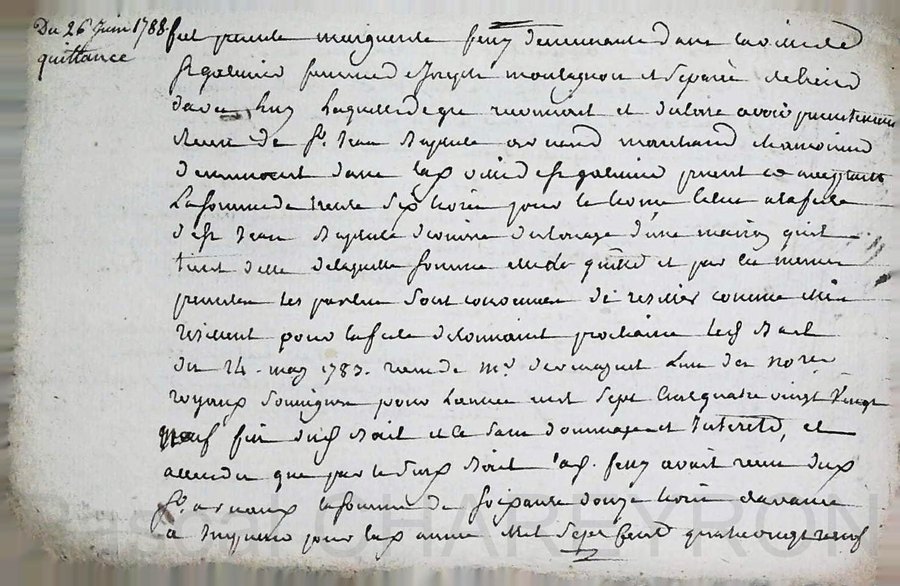 Du 26 Juin 1788.
quittance
fut presente marguerite fery demeurante dans la ville de
st galmier femme de Joseph montagnon et separée de biens
d'avec luy laquelle de gré reconnait et declare avoir presentement
Receu de sr. Jean Baptiste arnaud marchand
demeurant dans lad ville de st galmier present et acceptant
La somme de trente six livres pour le terme echu a la fete
de st Jean Baptiste derniere du louage d'une maison qu'il
tient d'elle de laquelle somme elle le quitte et par les memes
presentes les parties sont convenues de resilier comme elles
resilient pour la fete de toussaint prochaine led Bail
du 14. may 1783. recu de me. l'un des Nores
royaux soussignés pour l'année mil sept cent quatre vingt Vingt
neuf fin dud Bail et ce sans dommages et Interets, et
attendu que par le susd Bail lad. fery avait receu dud
sr. arnaud la somme de soixante douze livres d'avance
a imputer pour lad année Mil Sept Cent quatre vingt neuf
Pascal CHAREYRON